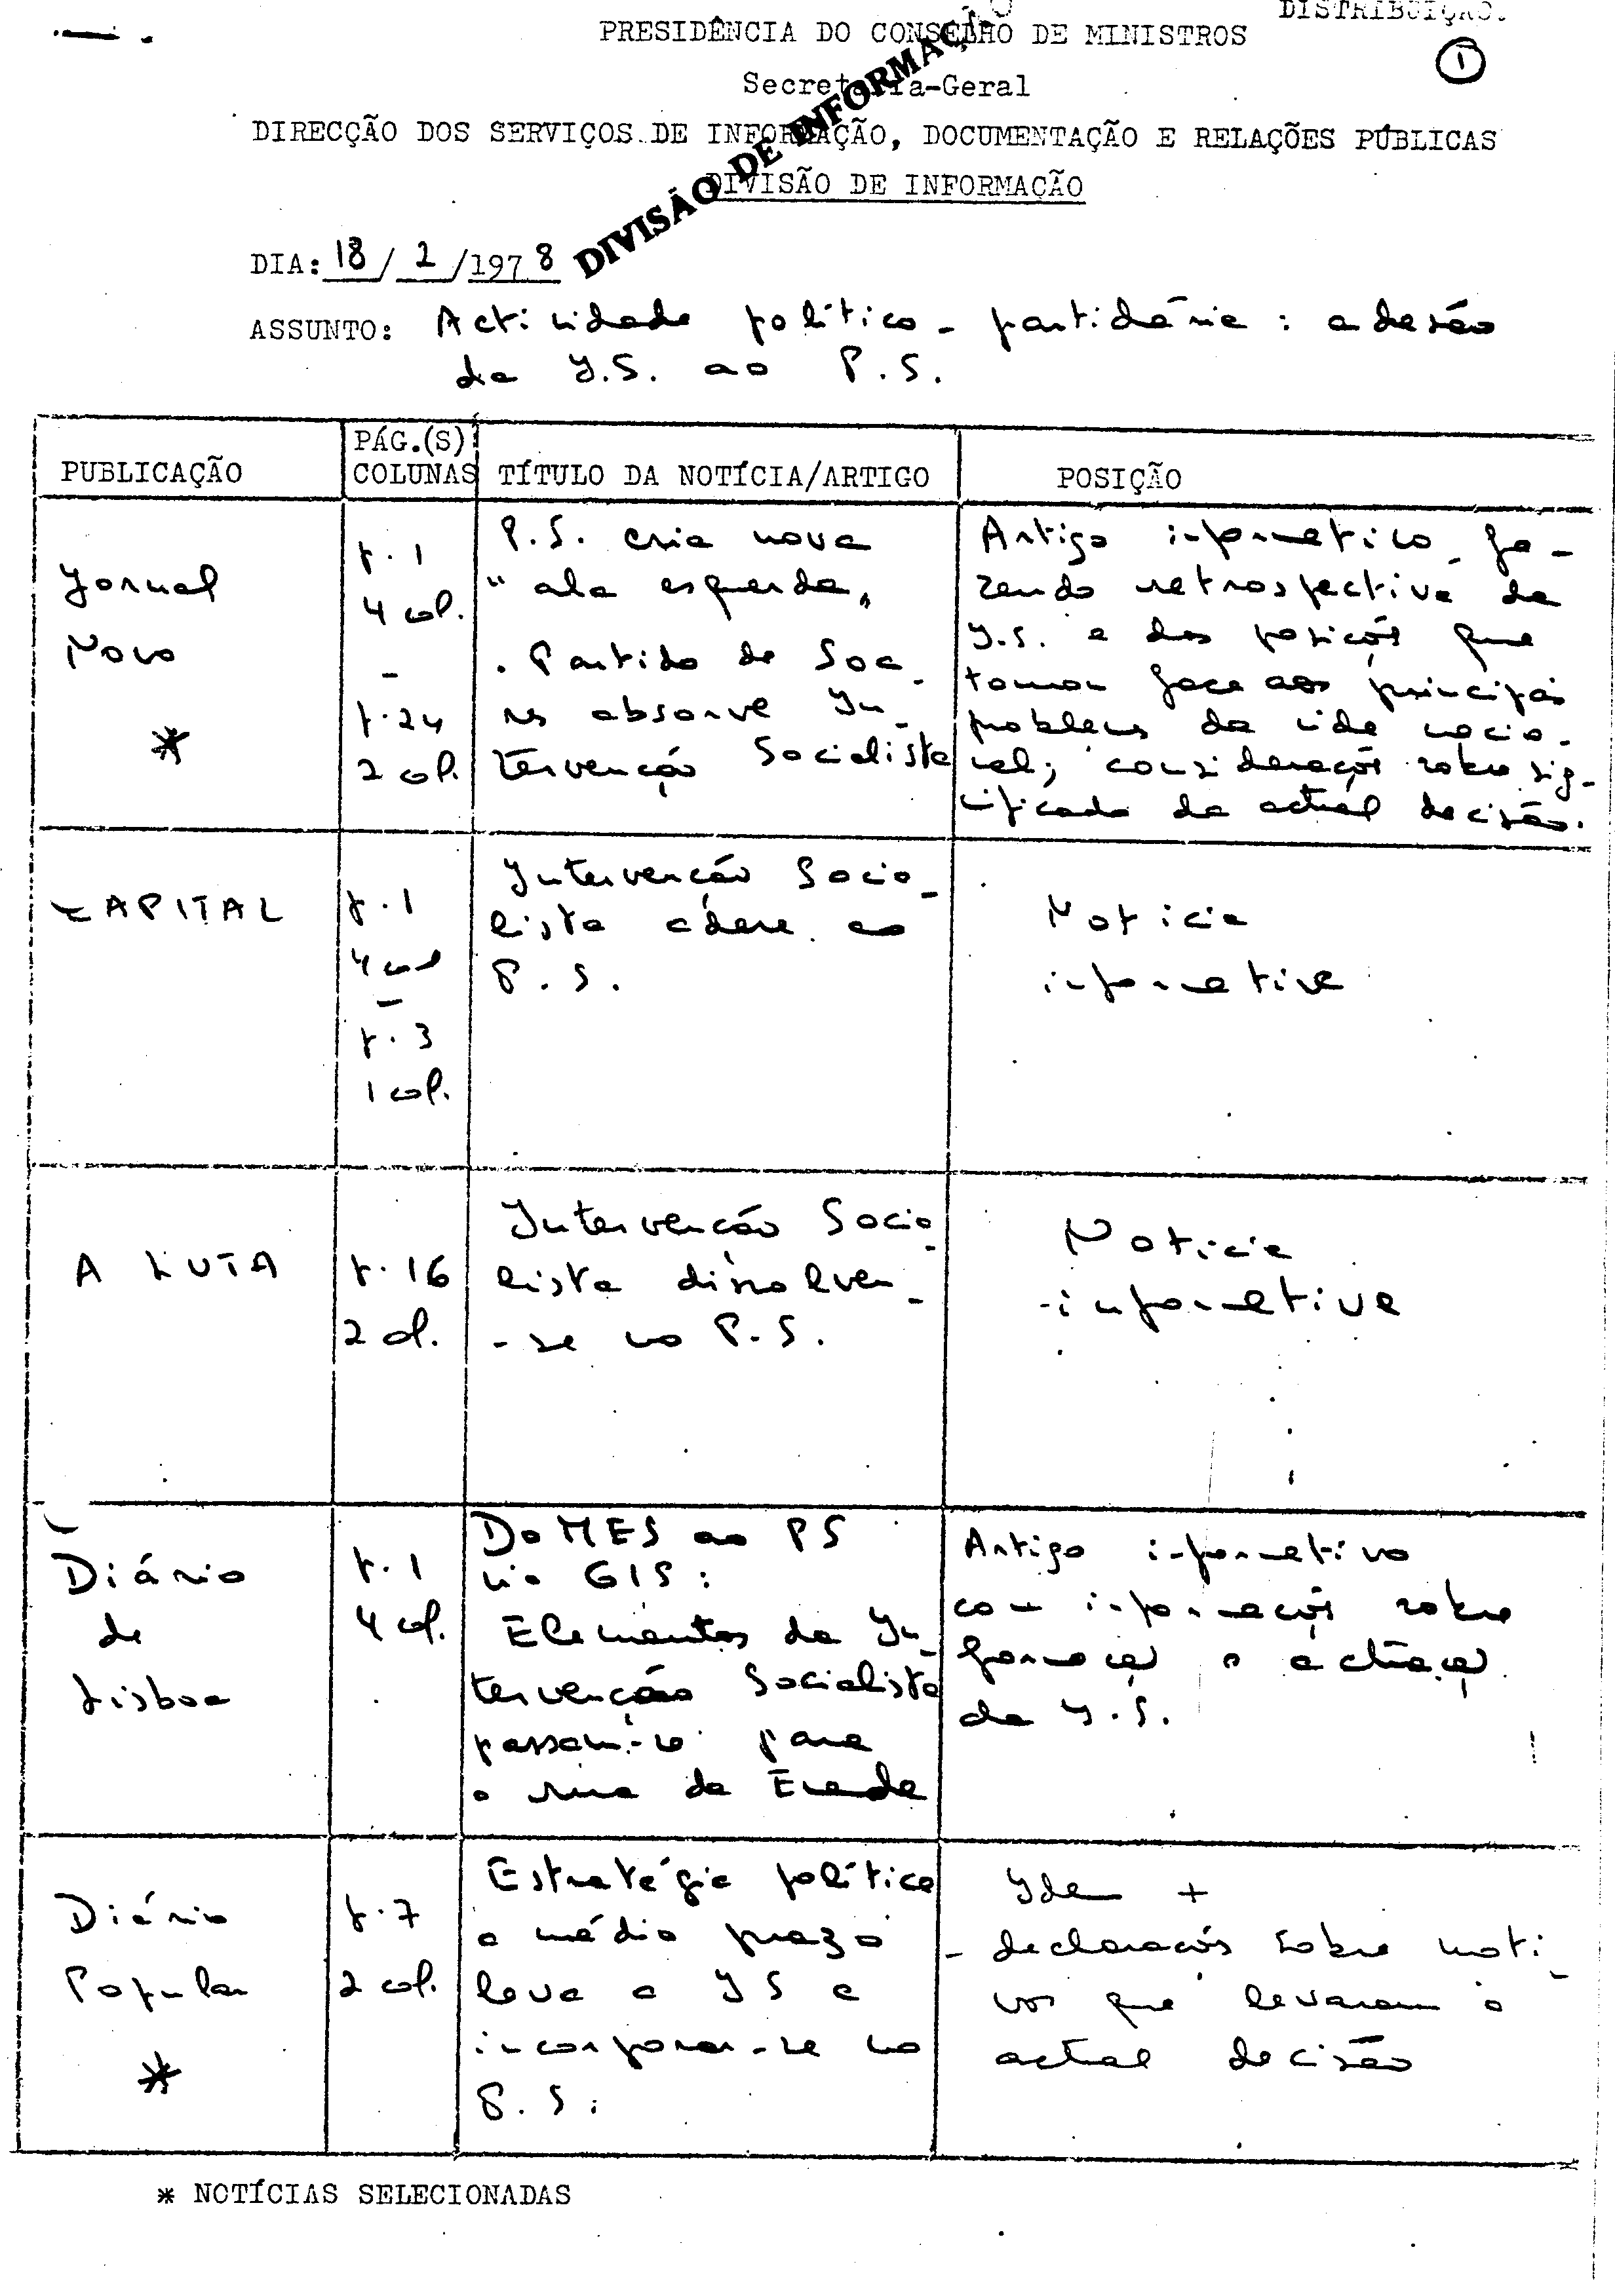 DISTRIBUIÇÃO:
PRESIDÊNCIA DO CONSELHO DE MINISTROS
1
Secretaria-Geral
DIRECÇÃO DOS SERVIÇOS DE INFORMAÇÃO, DOCUMENTAÇÃO E RELAÇÕES PÚBLICAS
DIVISÃO DE INFORMAÇÃO
DIVISÃO DE INFORMAÇÃO
DIA: 18 / 2 / 1978
ASSUNTO: Actividade político-partidária: adesão
da I.S. ao P.S.
PUBLICAÇÃO
PÁG.(S)
COLUNAS
TÍTULO DA NOTÍCIA/ARTIGO
POSIÇÃO
Jornal
Novo
*
p. 1
4 col.
-
p. 24
2 col.
P.S. cria nova
"ala esquerda"
. Partido de Soa-
res absorve In-
tervenção Socialista
Artigo informativo, fa-
zendo retrospectiva da
I.S. e das posições que
tomou face aos principais
problemas da vida nacio-
nal; considerações sobre sig-
nificado da actual decisão.
CAPITAL
p. 1
4 col
-
p. 3
1 col.
Intervenção Socia-
lista adere ao
P.S.
Notícia
informativa
A LUTA
p. 16
2 col.
Intervenção Socia-
lista dissolveu-
-se no P.S.
Notícia
informativa
Diário
de
Lisboa
p. 1
4 col.
Do MES ao PS
via GIS:
Elementos da In-
tervenção Socialista
passam-se para
a rua da Emenda
Artigo informativo
com informações sobre
formação e actuação
da I.S.
Diário
Popular
*
p. 7
2 col.
Estratégia política
a médio prazo
leva a IS a
incorporar-se no
P.S.
Idem +
- declarações sobre moti-
vos que levaram à
actual decisão
* NOTÍCIAS SELECIONADAS